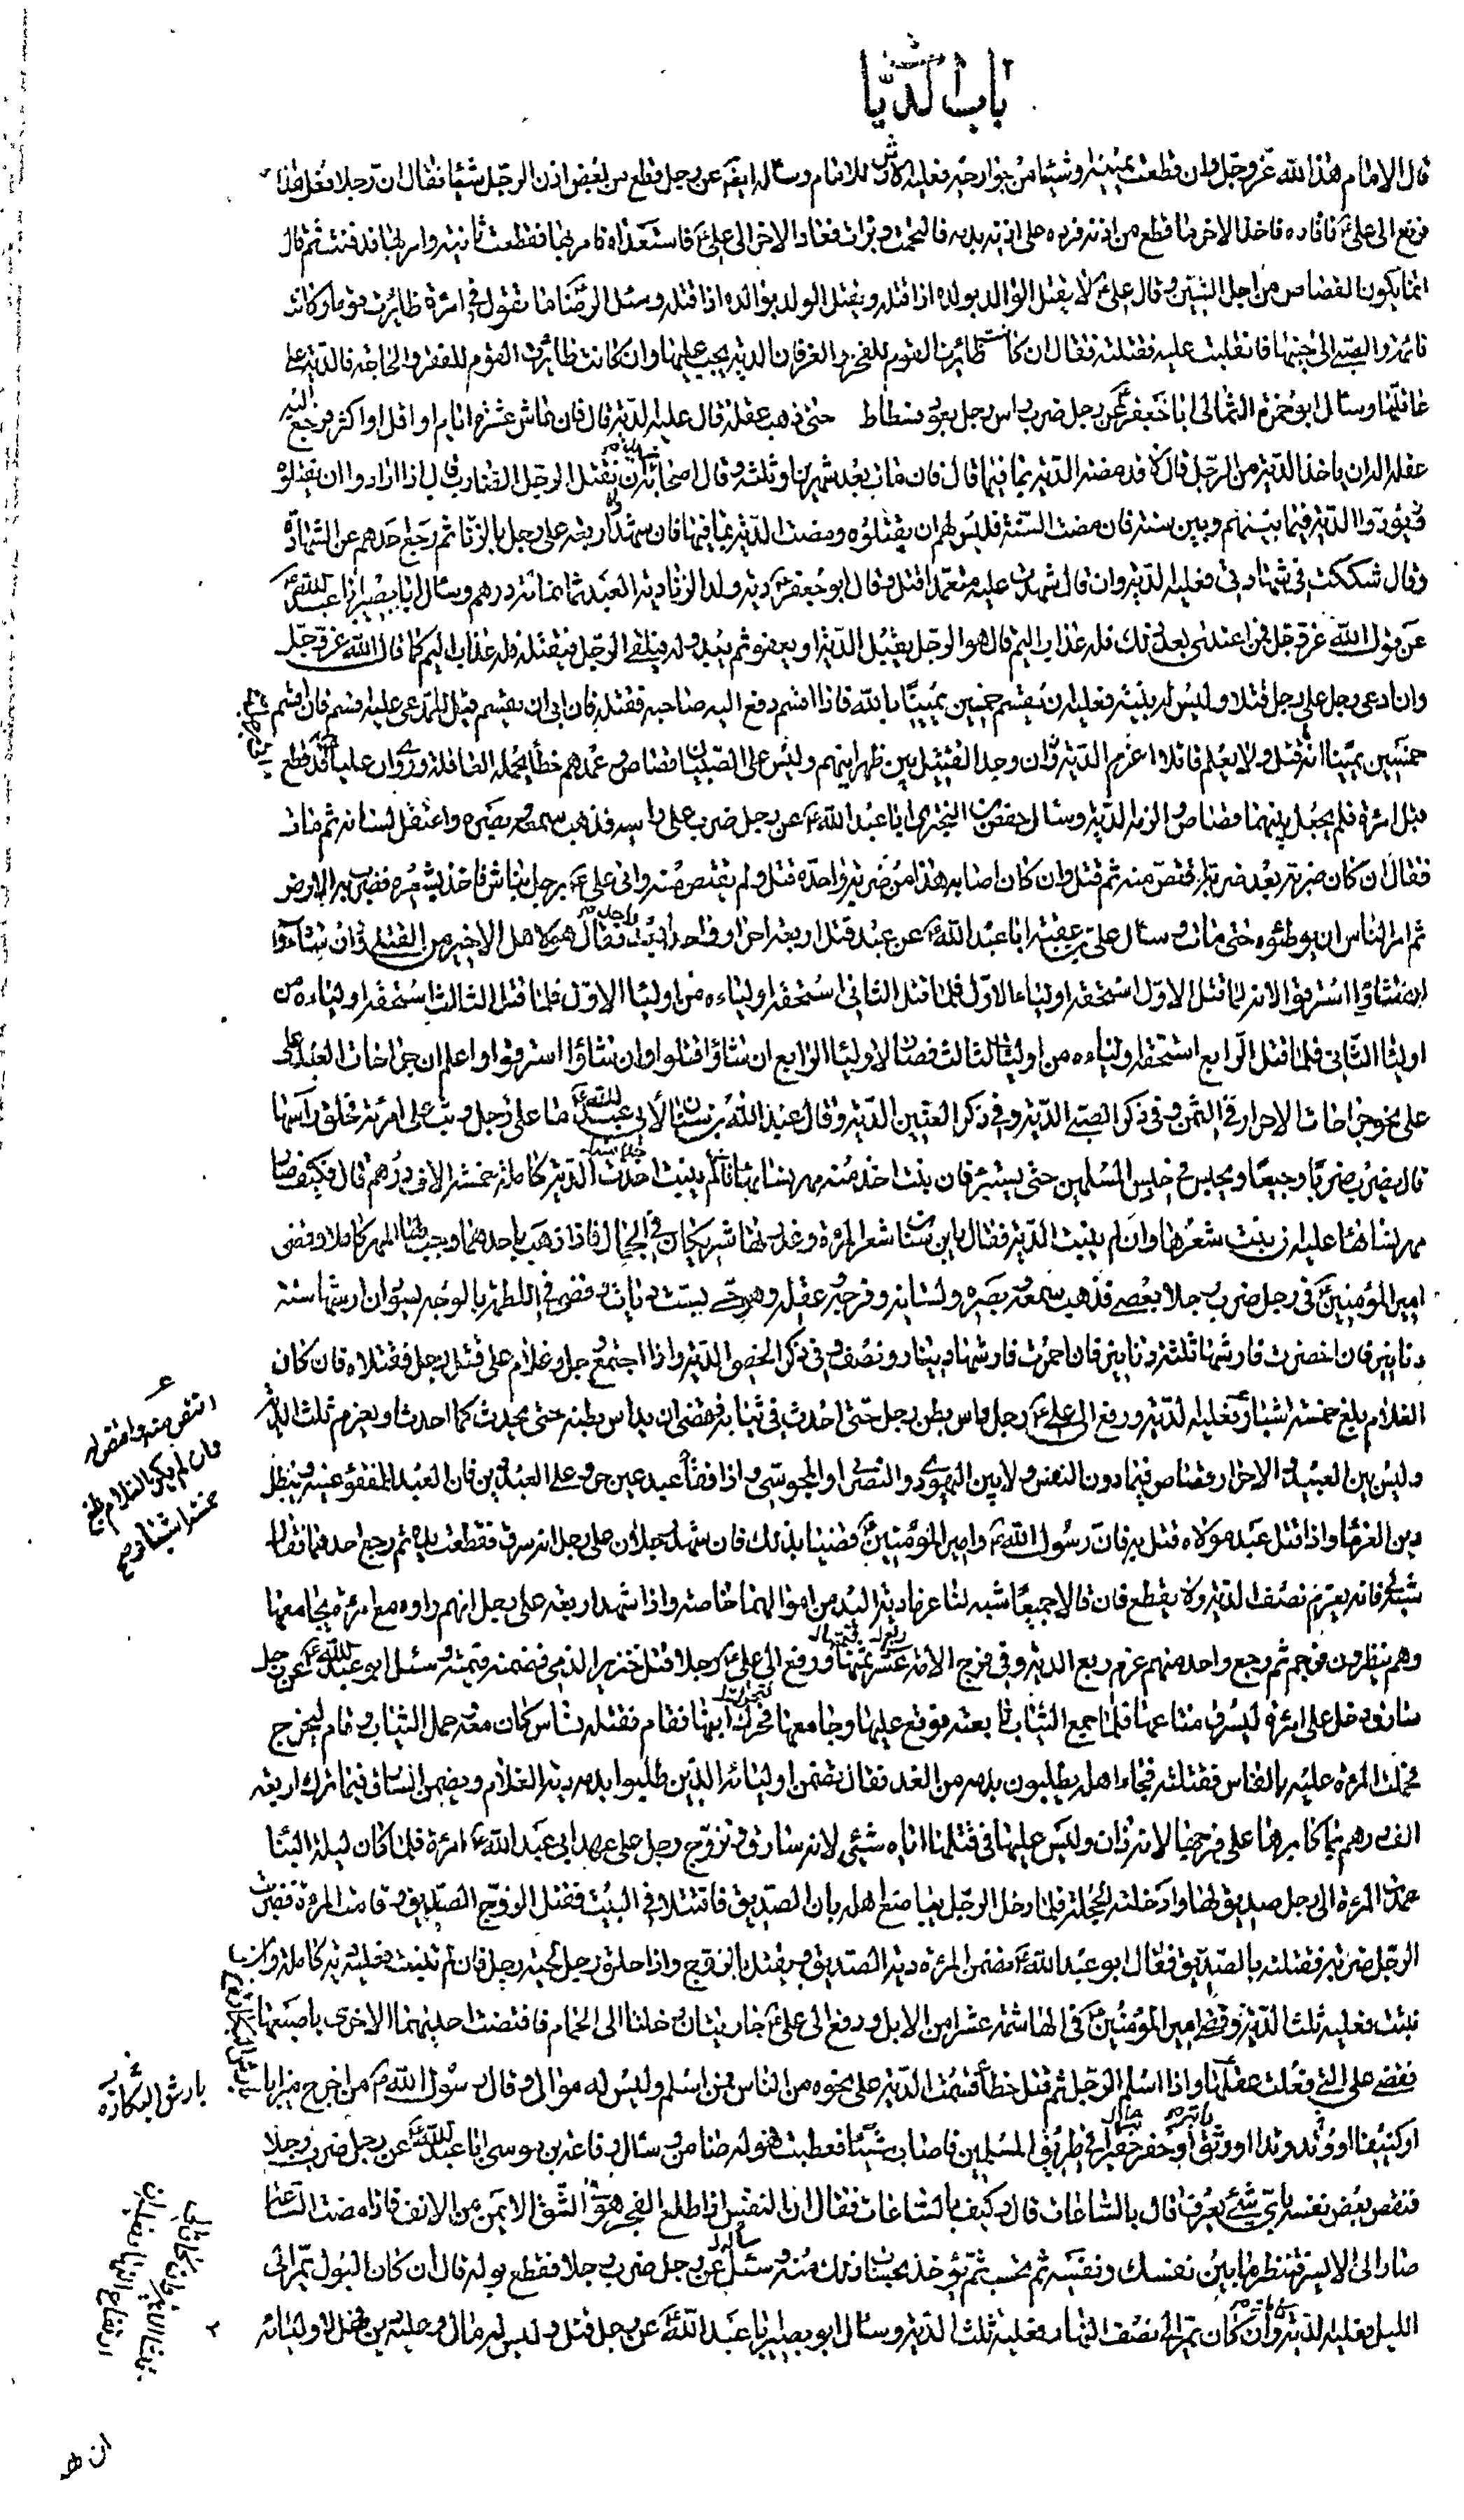 باب الديات
قال الامام هذا لله عز وجل وان قطعت يمينه او شيئا من جوارحه فعليه الارش للامام وسأله ايضا عن رجل قطع من بعض اذن الرجل شيئا فقال ان رجلا فعل هذا
فرفع الى علي ع فاقاده فاخذ الاخر ما قطع من اذنه فرده على اذنه بدمه فالتحمت وبرات فعاد الاخر الى علي ع فاستعداه فامر بها فقطعت ثانيته وامر بها فدفنت ثم قال
انما يكون القصاص من اجل الشين وقال علي ع لا يقتل الوالد بولده اذا قتله ويقتل الولد بوالده اذا قتله وسئل الرضا ما تقول في امرءة ظايرت قوما وكانت
نائمة والصبي الى جنبها فانقلبت عليه فقتلته فقال ان كانت ظائرت القوم للفخر والعز فان الدية يجب عليها وان كانت ظائرت القوم للفقر والحاجة فالدية على
عاقلتها وسأل ابو حمزة الثمالى ابا جعفر ع عن رجل ضرب راس رجل بعود فسطاط حتى ذهب عقله قال عليه الدية قال فان عاش عشرة ايام او اقل او اكثر فرجع اليه
عقله اله ان ياخذ الدية من الرجل قال لا قد مضت الدية بما فيها قال فان مات بعد شهرين او ثلثه وقال اصحابه نريد ان نقتل الرجل الضارب قال اذا ارادوا ان يقتلوه
فيؤدوا الدية فيما بينهم وبين سنة فان مضت السنة فليس لهم ان يقتلوه ومضت الدية بما فيها فان شهد اربعة على رجل بالزنا ثم رجع احدهم عن الشهادة
وقال شككت في شهادتي فعليه الدية وان قال شهدت عليه متعمدا قتل وقال ابو جعفر ع دية ولد الزنا دية العبد ثمانمائة درهم وسأل ابا بصير ابا عبد الله ع
عن قول الله عز وجل فمن اعتدى بعد ذلك فله عذاب اليم قال هو الرجل يقبل الدية او يعفو ثم يبدو له فيلقى الرجل فيقتله فله عذاب اليم كما قال الله عز وجل
وان ادعى رجل على رجل قتلا وليس له بينة فعليه ان يقسم خمسين يمينا بالله فاذا اقسم دفع اليه صاحبه فقتله فان ابى ان يقسم قيل للمدعى عليه اقسم فان اقسم
خمسين يمينا انه ما قتل ولا يعلم قاتلا اغرم الدية ان وجد القتيل بين ظهرانيهم وليس على الصبيان قصاص وعمدهم خطأ يحمله العاقلة وروى ان عليا قد قطع
فبل امرءة فلم يجعل بينهما قصاص والزمه الدية وسأل حفص بن البختري ابا عبد الله ع عن رجل ضرب على راسه فذهب سمعه وبصره واعتقل لسانه ثم مات
فقال ان كان ضربه بعد ضربة اقتص منه ثم قتل وان كان اصابه هذا من ضربة واحدة قتل ولم يقتص منه واتى علي ع برجل نباش فاخذ بشعره فضرب به الارض
ثم امر الناس ان يوطئوه حتى مات وسأل علي بن عقبة ابا عبد الله ع عن عبد قتل اربعة احرار واحدا بعد واحد فقال هو لاهل الاخير من القتلى ان شاءوا
قتلوا وان شاؤا استرقوا لانه لما قتل الاول استحقه اولياء الاول فلما قتل الثاني استحقه اولياءه من اولياء الاول فلما قتل الثالث استحقه اولياءه من
اولياء الثاني فلما قتل الرابع استحقه اولياءه من اولياء الثالث فصار لاولياء الرابع ان شاؤا قتلوا وان شاؤا استرقوا واعلم ان جراحات العبد على
على نحو جراحات الاحرار في الثمن وفي ذكر الصبي الدية وفي ذكر العنين الدية وقال عبد الله بن سنان لأبي عبد الله ع ما على رجل وثب على امرئة فحلق رأسها
قال يضرب ضربا وجيعا ويحبس في حبس المسلمين حتى يستبرء فان نبت اخذ منه مهر نسائها فان لم ينبت اخذت الدية كاملة خمسة الاف درهم قال فكيف صار
مهر نسائها عليه ان نبت شعرها وان لم ينبت الدية فقال يا بن سنان شعر المرءة وعذرتها شريكان في الجمال فاذا ذهب باحدهما وجب لها المهر كاملا وقضى
امير المؤمنين ع في رجل ضرب رجلا بعصى فذهب سمعه وبصره ولسانه وفرجه وعقله وهو حي بست ديات وقضى في اللطمة بالوجه يسود ان ارشها ستة
دنانير فان اخضرت فارشها ثلثة دنانير فان احمرت فارشها دينار ونصف وفي ذكر الخصي الدية واذا اجتمع رجل وغلام على قتل رجل فقتلاه فان كان
الغلام بلغ خمسة اشبار فعليه الدية ورفع الى علي ع رجل داس بطن رجل حتى احدث في ثيابه فقضى ان يداس بطنه حتى يحدث كما احدث او يغرم ثلث الدية
وليس بين العبيد والاحرار قصاص فيما دون النفس ولا بين اليهودي والنصراني والمجوسي واذا فقأ عبد عين حر وعلى العبد دين فان العبد للمفقو عينه ويبطل
دين الغرماء واذا قتل عبد مولاه قتل به فان رسول الله ص وامير المؤمنين ع قضيا بذلك فان شهد رجلان على رجل انه سرق فقطعت يده ثم رجع احدهما فقال
شبه لي فانه يغرم نصف الدية ولا يقطع فان قالا جميعا شبه لنا غرما دية اليد من اموالهما خاصة واذا شهد اربعة على رجل انهم راوه مع امرءة يجامعها
وهم ينظرون فرجم ثم رجع واحد منهم غرم ربع الدية وفي فرج الامة عشر ثمنها ورفع الى علي ع رجل قتل خنزير الذمي فضمنه قيمته وسئل ابو عبد الله ع عن رجل
سارق دخل على امرءة ليسرق متاعها فلما جمع الثياب تابعته نفسه فوقع عليها وجامعها فتحرك ابنها فقام فقتله بفاس كان معه حمل الثياب وقام ليخرج
فحملت المرءة عليه بالفاس فقتلته فجاء اهله يطلبون بدمه من الغد فقال يضمن اوليائه الذين طلبوا بدمه دية الغلام ويضمن السارق فيما ترك اربعة
الف درهم بما كابرها على فرجها لانه زان وليس عليها في قتلها اياه شيئ لانه سارق وتزوج رجل على عهد ابي عبد الله ع امرءة فلما كان ليلة البناء
عمدت المرءة الى رجل صديق لها وادخلته الحجلة فلما دخل الرجل يباضع اهله بان الصديق فاقتتلا في البيت فقتل الزوج الصديق وقامت المرءة فضربت
الرجل ضربة فقتلته بالصديق فقال ابو عبد الله ع تضمن المرءة دية الصديق وتقتل بالزوج واذا حلق رجل لحية رجل فان لم تنبت فعليه دية كاملة وان
نبتت فعليه ثلث الدية وقضى امير المؤمنين ع في الهاشمة عشرا من الابل ورفع الى علي ع جاريتان دخلتا الى الحمام فافتضت احديهما الاخرى باصبعها
فقضى على التي فعلت عقلها واذا اسلم الرجل ثم قتل خطأ قسمت الدية على نحوه من الناس ممن اسلم وليس له موالى وقال رسول الله ص من اخرج ميزابا
او كنيفا او وتد وتدا او اوثق دابة او حفر بئرا في طريق المسلمين فاصاب شيئا فعطبت فهو له ضامن وسأل رفاعة بن موسى ابا عبد الله ع عن رجل ضرب رجلا
فنقص بعض نفسه باي شئ يعرف قال بالساعات قال وكيف بالساعات فقال ان النفس اذا طلع الفجر هو في الشق الايمن من الانف فاذا مضت الساعة
صار الى الايسر فتنظر ما بين نفسك ونفسه ثم يحسب ثم يؤخذ بحساب ذلك منه وسئل عن رجل ضرب رجلا فقطع بوله قال ان كان البول يمر الى
الليل فعليه الدية وان كان يمر الى نصف النهار فعليه ثلثا الدية وسأل ابو بصير ابا عبد الله ع عن رجل قتل وليس له مال وعليه دين فهل لاوليائه
اقتص منه واقتص له
وان لم يكن الغلام بلغ
خمسة اشبار
بارش البكارة
ان يهـ